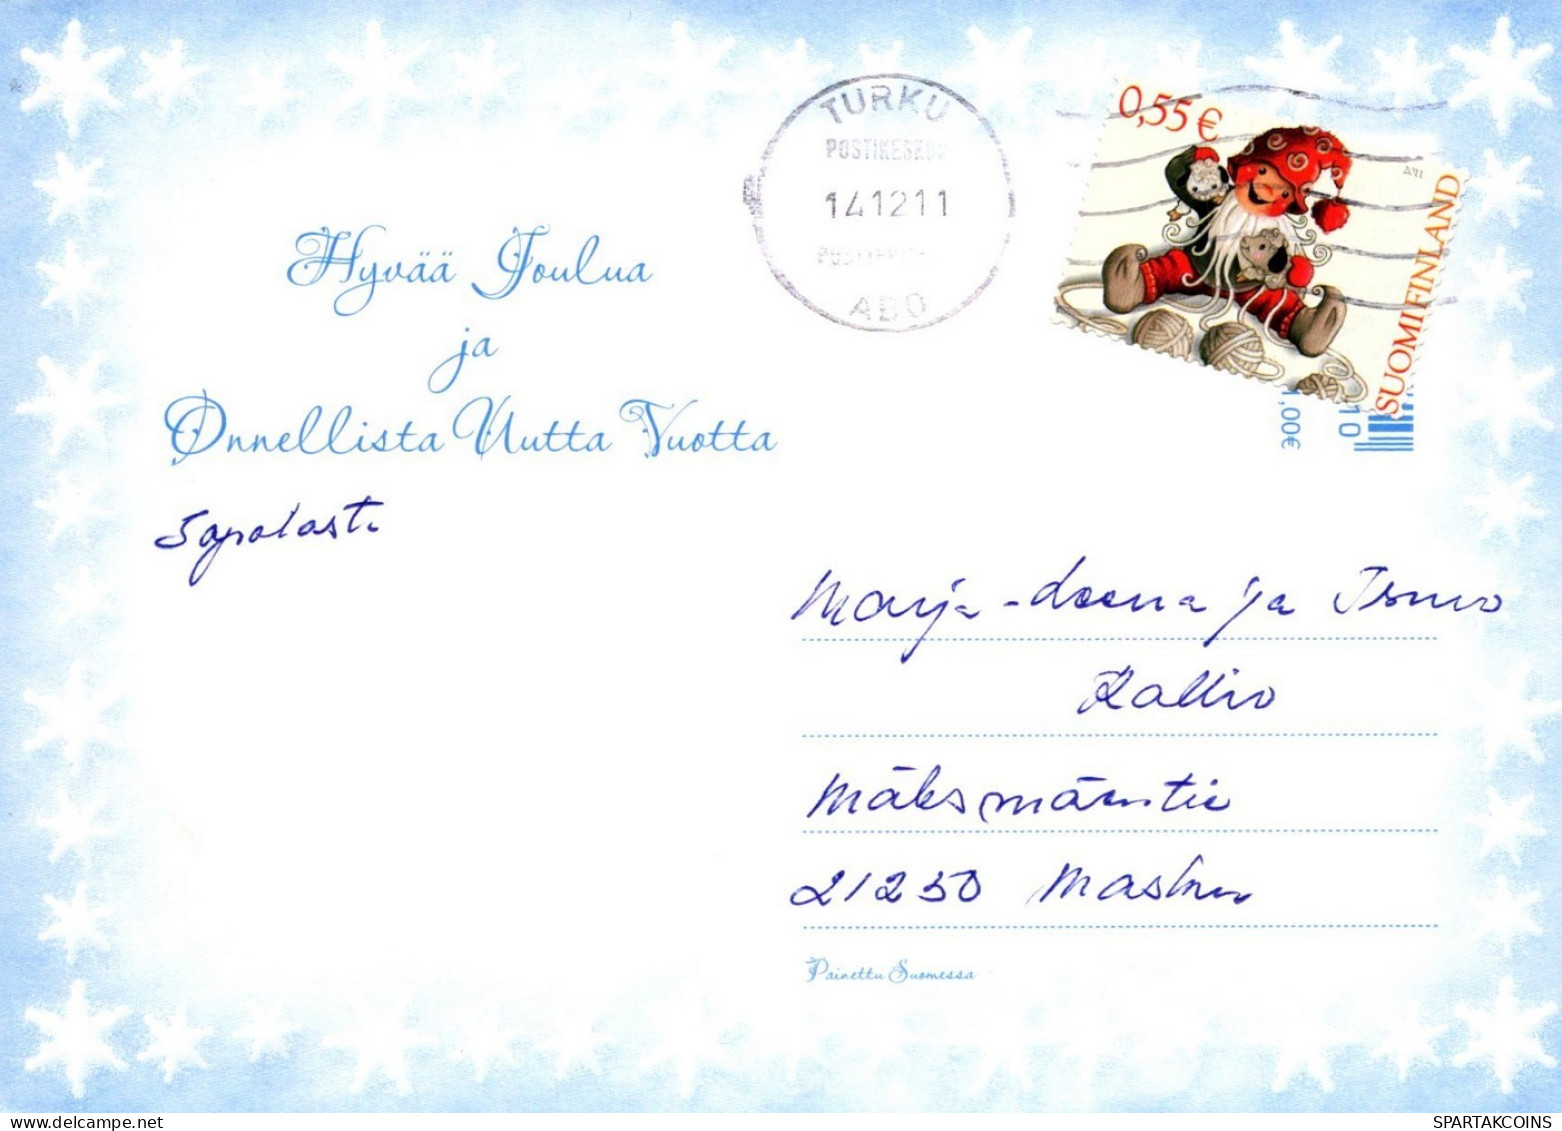 TURKU
POSTIKESKUS
14.12.11
ÅBO
0,55 €
2011
SUOMI FINLAND
10
1,00€
Hyvää Joulua
ja
Onnellista Uutta Vuotta
Marja-Leena ja Ismo
Kallio
21250 Masku
Painettu Suomessa
SPARTAKCOINS
delcampe.net